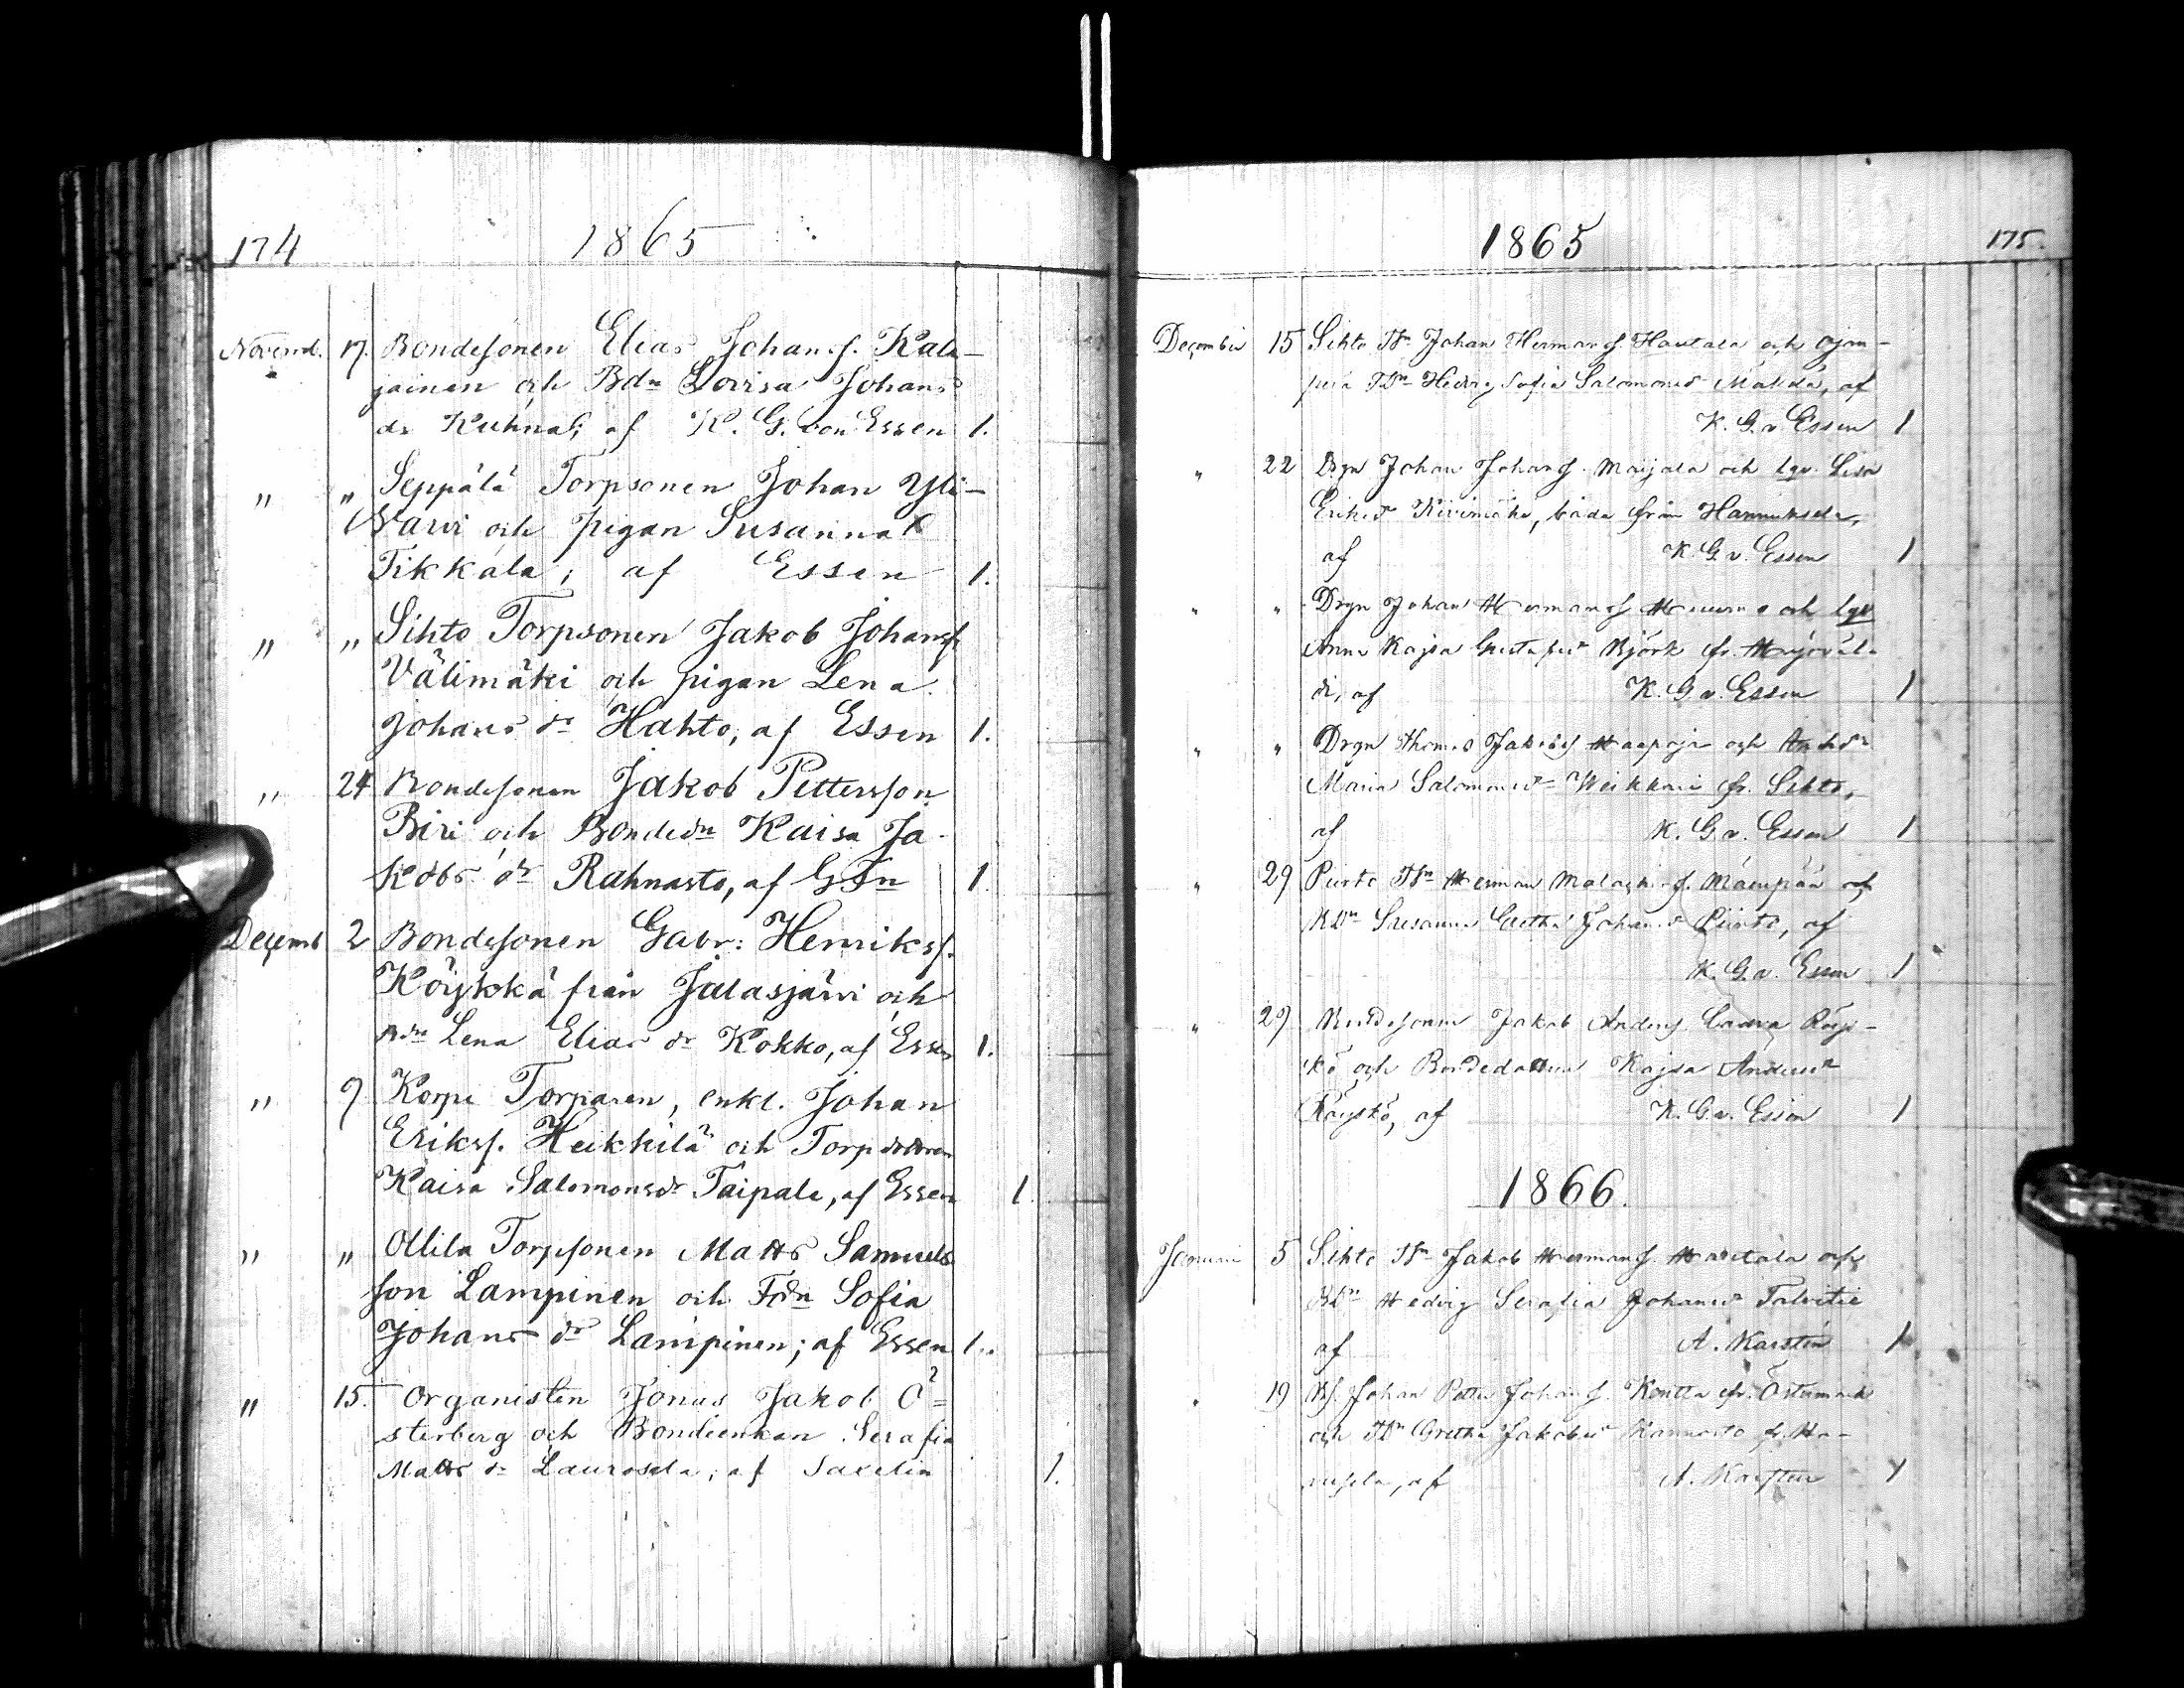 174
1865
Novemb. 17. Bondesonen Elias Johansf. Kala-
jainen och Bdn Lovisa Johans
dr Kuhnal; af K. G. von Essen 1.
" " Seppälä Torpsonen Johan Yli-
Narvi och pigan Susanna
Tikkala; af Essen 1.
" " Sihto Torpsonen Jakob Johansf.
Välimäki och pigan Lena
Johans dr Hahto, af Essen 1.
" 24 Bondesonen Jakob Pettersson
Biri och Bondedn Kaisa Ja-
kobs dr Rahnasto, af GFn 1.
Decemb 2 Bondesonen Gabr: Henriksf.
Köykkä från Jalasjärvi och
Bdn Lena Elias dr Kokko, af Essen 1.
" 9 Korpi Torparen, enkl. Johan
Eriksf. Heikkilä och Torpdottren
Kaisa Salomonsdr Taipale, af Essen 1.
" " Ollila Torpsonen Matts Samuels
son Lampinen och Tdn Sofia
Johans dr Lampinen; af Essen 1.
" 15. Organisten Jonas Jakob Ö=
sterberg och Bondeenkan Serafia
Matts dr Laurosela; af 1.
1865
175.
December 15 Sihto Tsn Johan Hermansf. Hautala och Ojan-
perä Tdn Hedvig Sofia Salomonsdr af
K. G. v. Essen 1
" 22 Drgn Johan Johansf. Maijala och Lisa
Eriksdr Kivimäki, båda från Hannuksela,
af K. G. v. Essen 1
" " Drgn Johan Hermansf. och
Anna Kajsa Gustafsdr Björk fr.
di, af K. G. v. Essen 1
" " Drgn Thomas Jakobsf. Haapoja och
Maria Salomonsdr Weikkari fr. Sihto,
af K. G. v. Essen 1
" 29 Piirto Tsn Herman Mäenpää och
Bdn Susanna Greta Johansdr Piirto, af
K. G. v. Essen 1
" 29 Bondesonen Jakob Andersf. Röys-
kö och Bondedottren Kajsa Andersdr
Röyskö, af K. G. v. Essen 1
1866.
Januari 5 Sihto Tsn Jakob Hermansf. Hautala och
Bdn Hedvig Serafia Johansdr Talvitie
af A. Karsten 1
" 19 Bs. Johan Petter Johansf. Kontta fr. Östermark
och Tdn Greta Jakobsdr fr. Ha-
nuksela, af A. Karsten 1